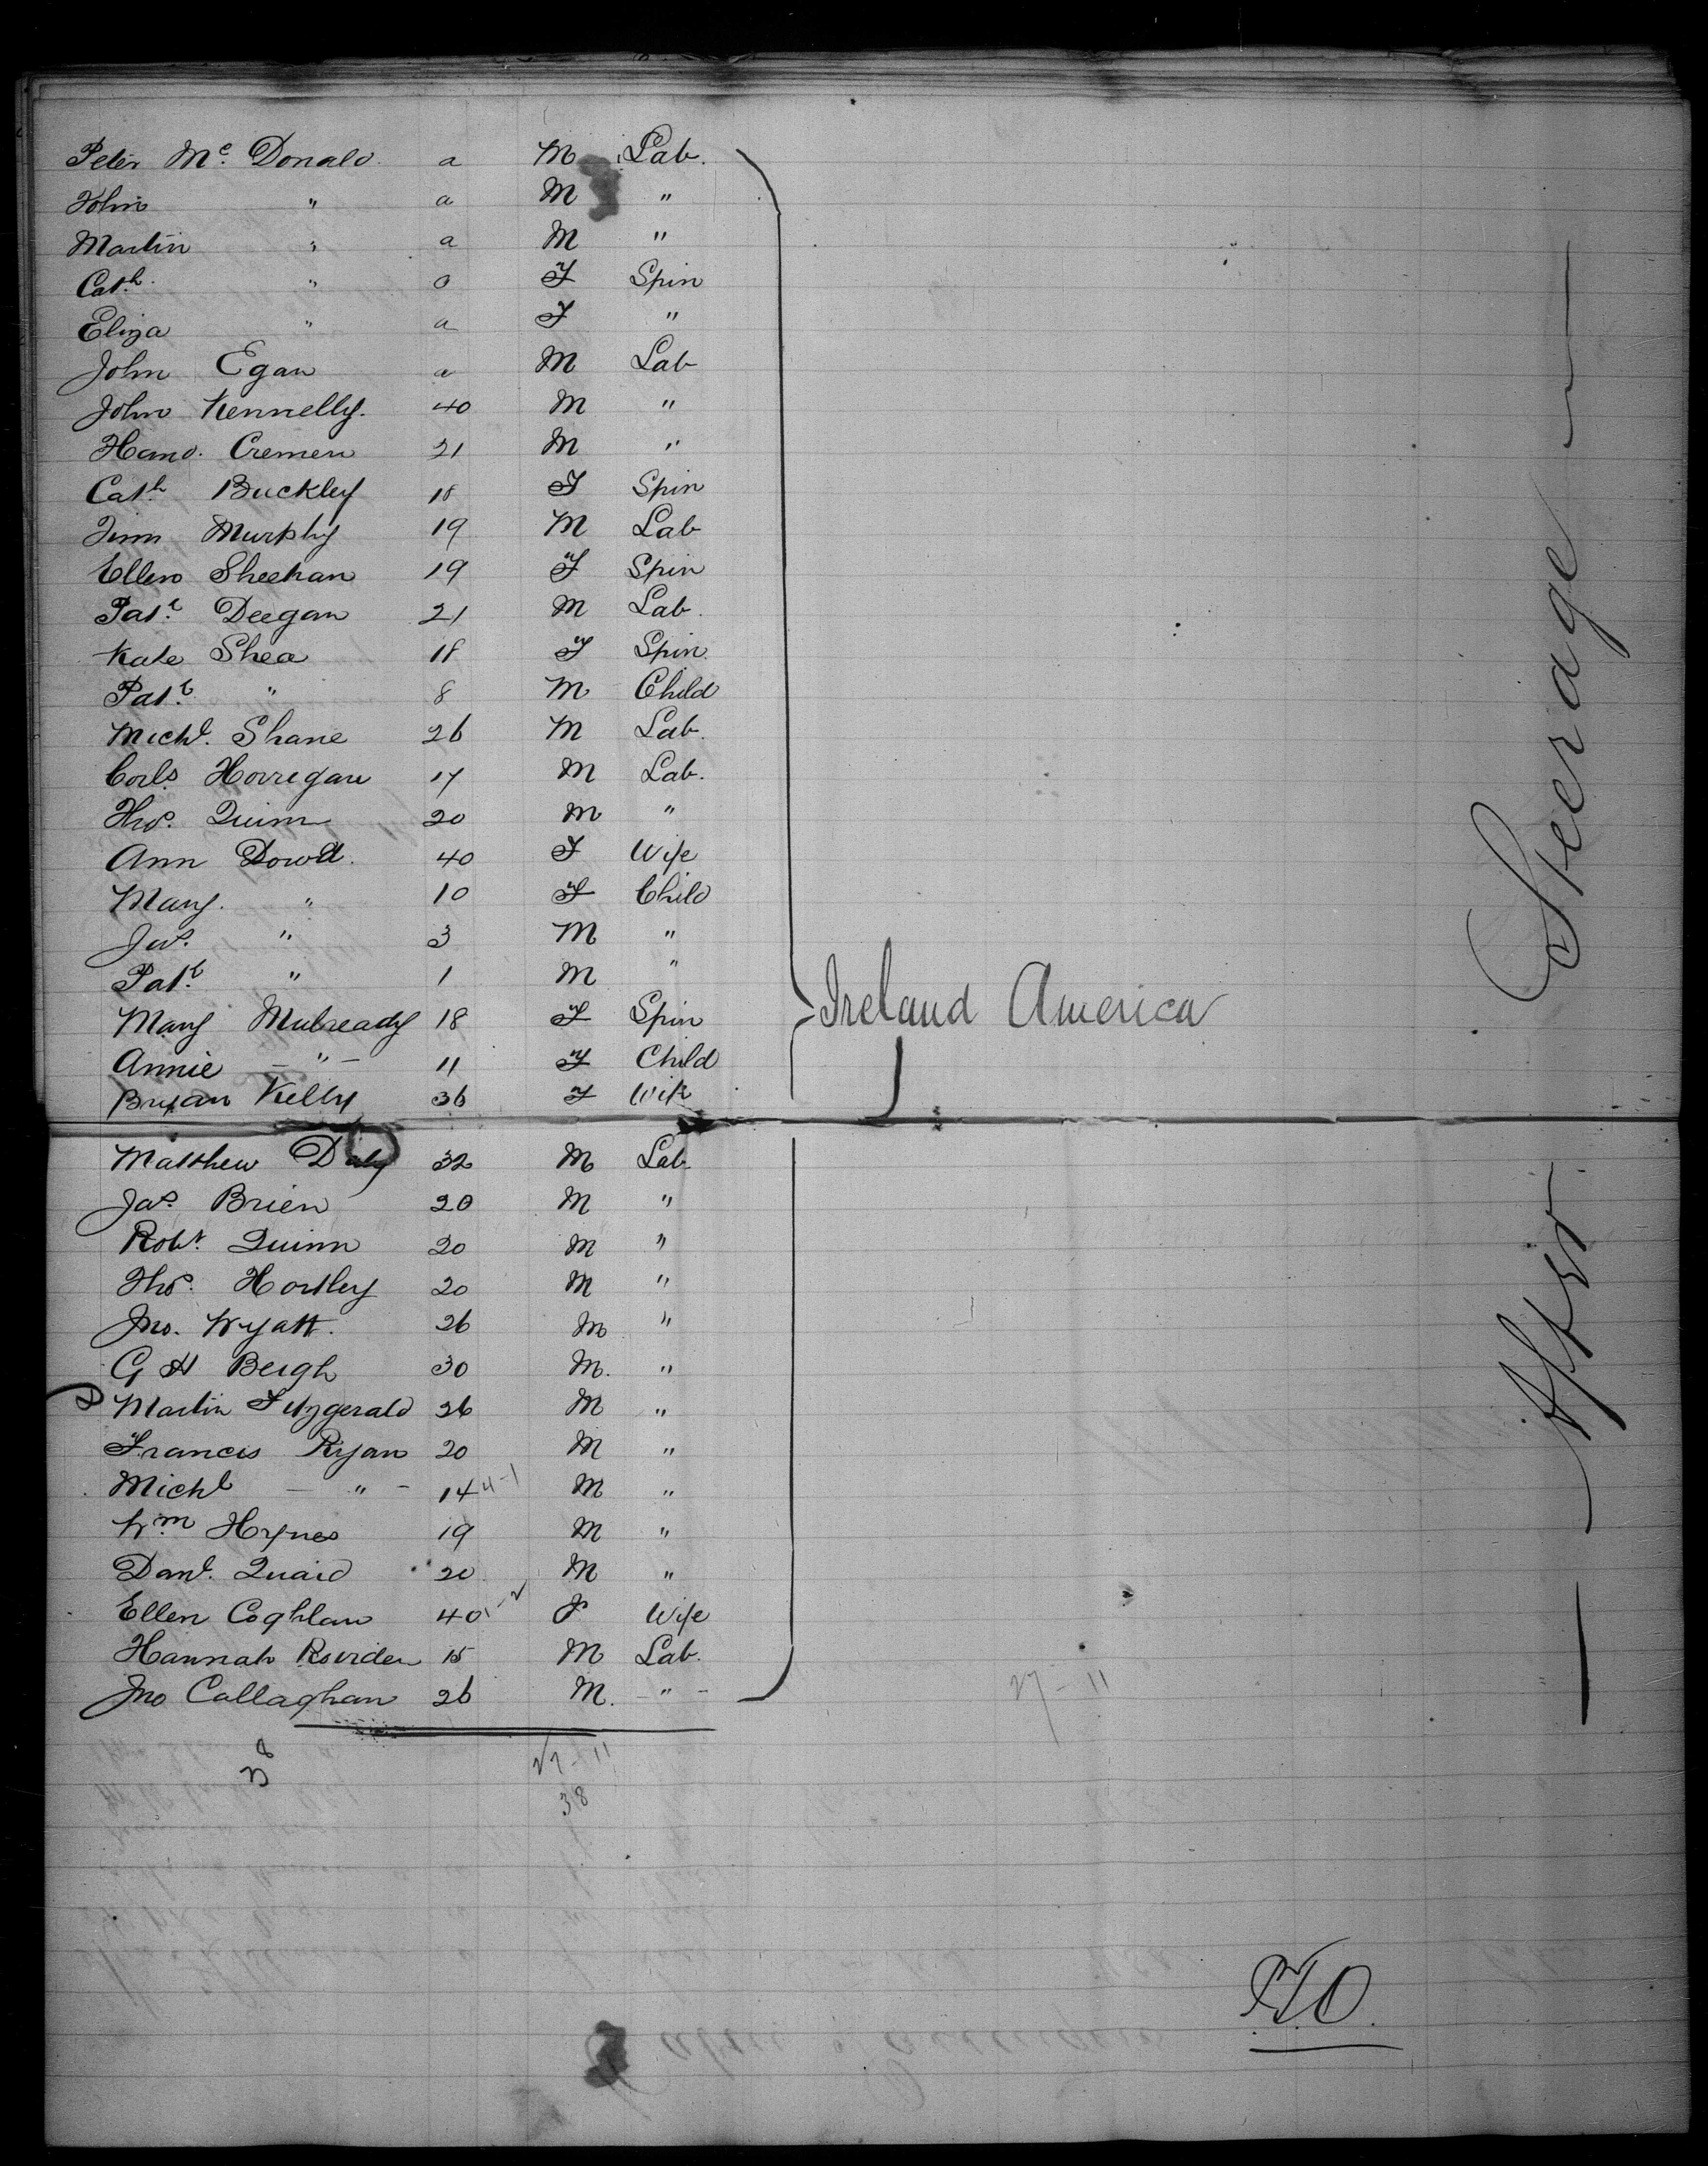 Peter Mc. Donald. a M Lab.
John " a M "
Martin " a M "
Cath. " a F Spin
Eliza " a F "
John Egan a M Lab
John Kennelly. 40 M "
Hano. Cremen 21 M "
Cath Buckley 18 F Spin
Timn Murphy 19 M Lab
Ellen Sheehan 19 F Spin
Patk. Deegan 21 M Lab.
Kate Shea 18 F Spin.
Patk. " 8 M Child
Michl. Shane 26 M Lab.
Corls. Horregan 17 M Lab.
Thos. Quinn 20 M "
Ann Dowd. 40 F Wife
Mary. " 10 F Child
Jas. " 3 M "
Patk. " 1 M "
Mary Mulready 18 F Spin
Ireland America
Annie - " - 11 F Child
Bryan Kelly 36 F Wife
Matthew Daly 32 M Lab
Jas. Brien 20 M "
Robt. Quinn 20 M "
Thos. Hortley 20 M "
Jno. Wyatt. 26 M "
G H Beigh 30 M. "
Martin Fitzgerald 26 M "
Francis Ryan 20 M "
Michl - " - 14 4-1 M "
Wm Hynes 19 M "
Danl. Quaid 20 M "
Ellen Coghlan 40 1-2 F Wife
Hannah Rourden 15 M Lab.
Jno Callaghan 26 M. - " -
27-11
38
27-11
38
Steerage
PTO.